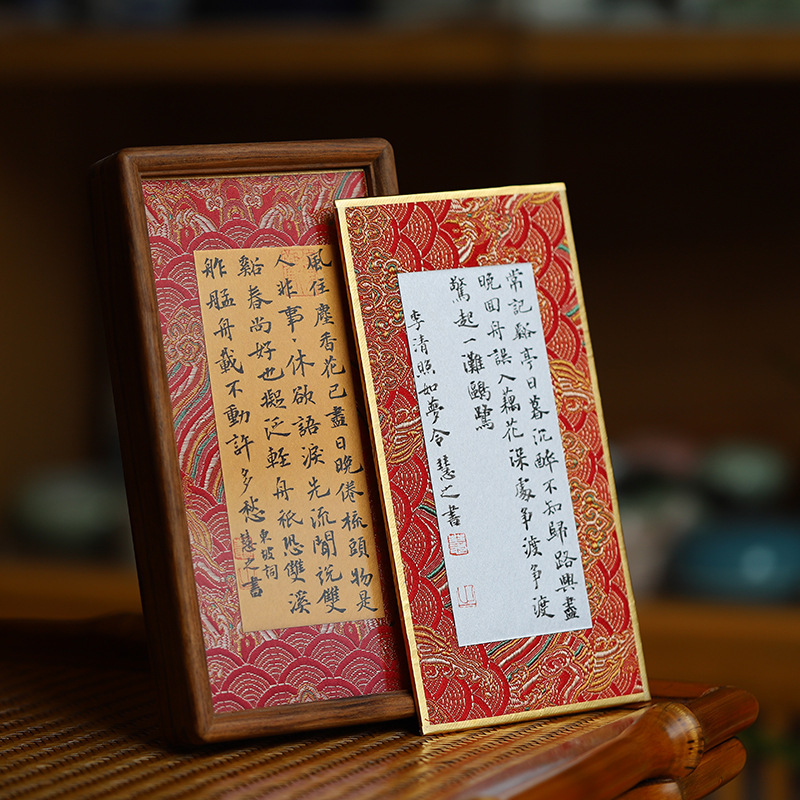 風住塵香花已盡日晚倦梳頭物是
人非事〻休欲語淚先流聞說雙
谿春尚好也擬泛輕舟祇恐雙溪
舴艋舟載不動許多愁
東坡詞
慧之書
常記谿亭日暮沉醉不知歸路興盡
晚回舟誤入藕花深處爭渡爭渡
驚起一灘鷗鷺
李清照如夢令 慧之書